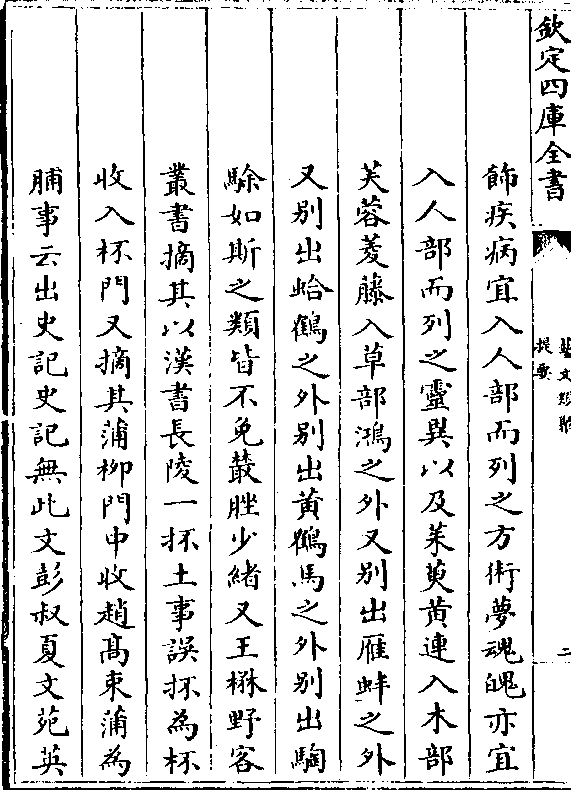 欽定四庫全書
藝文類聚
提要
二
飾疾病宜入人部而列之方術夢魂魄亦宜
入人部而列之靈異以及茱萸黄連入木部
芙蓉菱藤入草部鴻之外又别出雁蚌之外
又别出蛤鶴之外别出黄鶴馬之外别出騊
駼如斯之類皆不免叢脞少緒又王楙野客
叢書摘其以漢書長陵一抔土事誤抔為杯
收入杯門又摘其蒲柳門中收趙髙束蒲為
脯事云出史記史記無此文彭叔夏文苑英